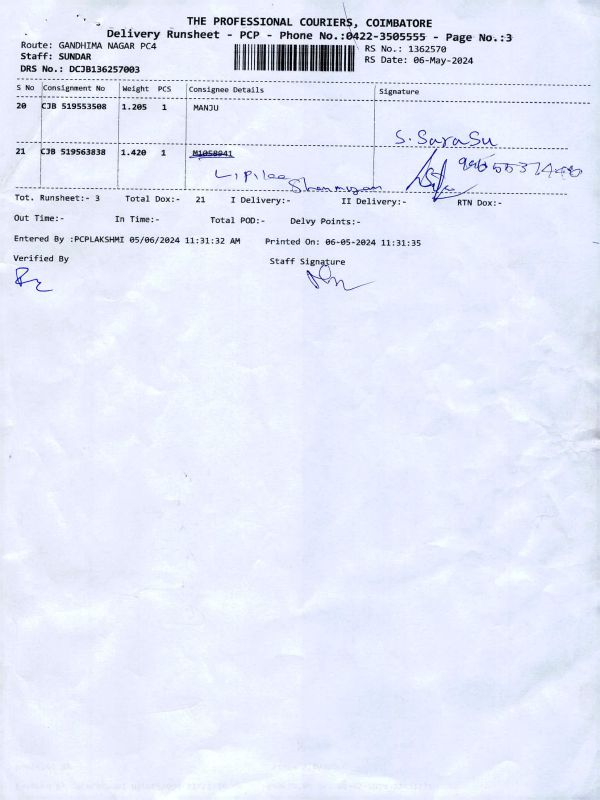 THE PROFESSIONAL COURIERS, COIMBATORE
Delivery Runsheet - PCP - Phone No.:0422-3505555 - Page No.:3
Route: GANDHIMA NAGAR PC4
RS No.: 1362570
Staff: SUNDAR
RS Date: 06-May-2024
DRS No.: DCJB136257003
S No Consignment No Weight PCS Consignee Details Signature
20 CJB 519553508 1.205 1 MANJU
S. Sarasu
21 CJB 519563838 1.420 1 M1058941
Tot. Runsheet:- 3 Total Dox:- 21 I Delivery:- II Delivery:- RTN Dox:-
Out Time:- In Time:- Total POD:- Delvy Points:-
Entered By :PCPLAKSHMI 05/06/2024 11:31:32 AM Printed On: 06-05-2024 11:31:35
Verified By Staff Signature